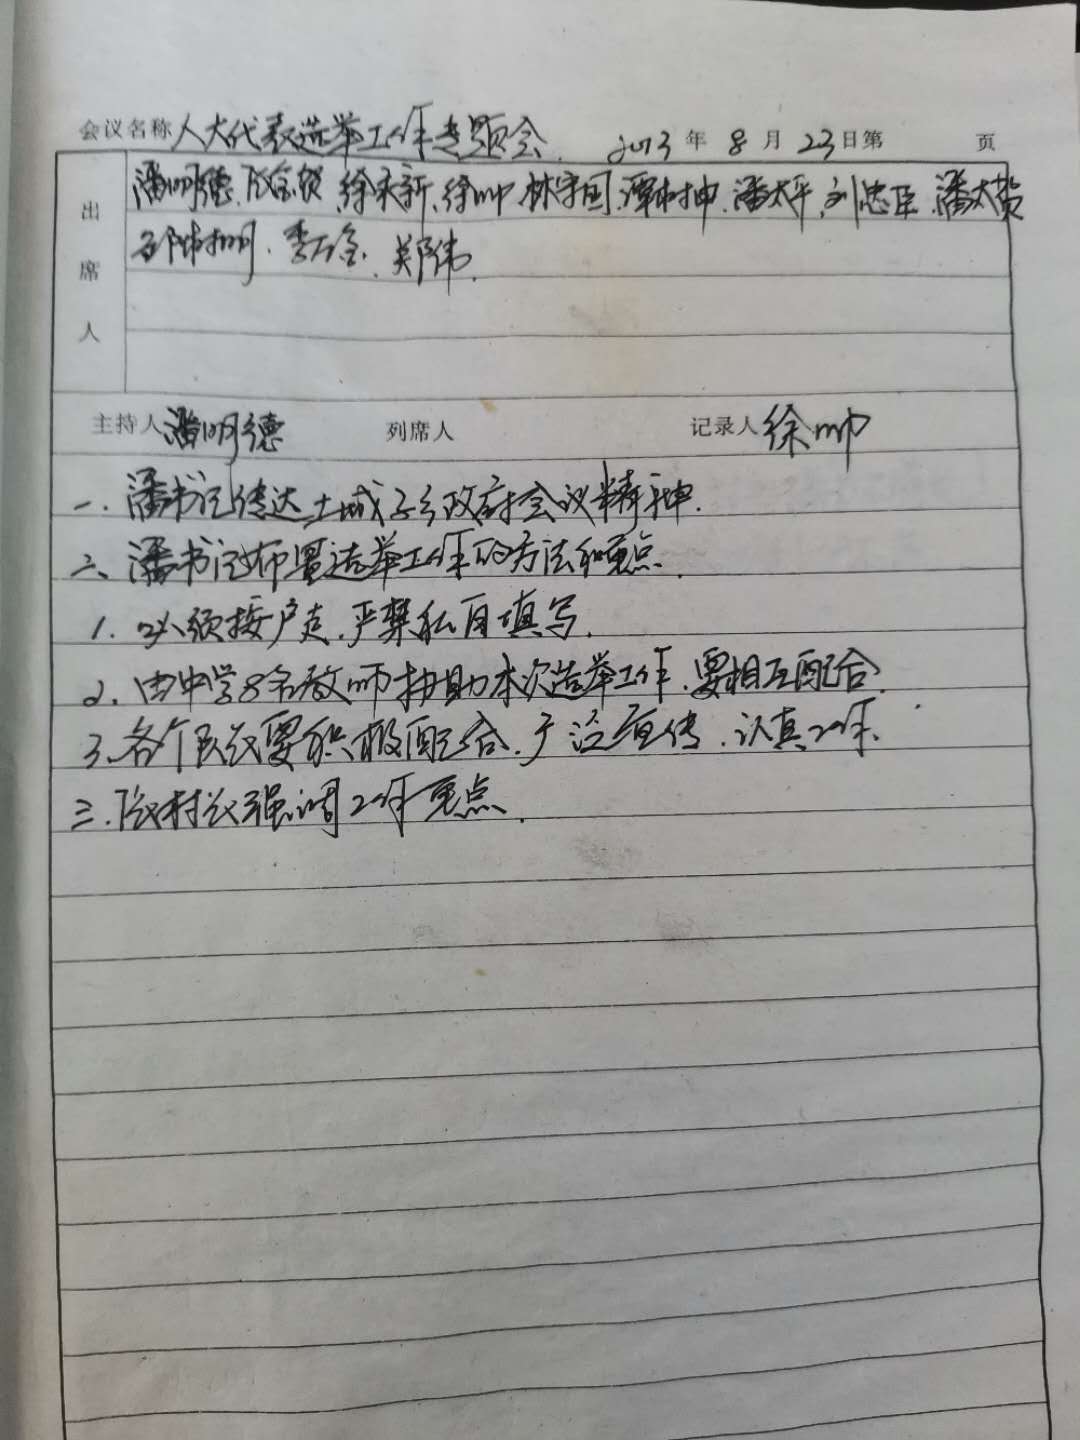 会议名称 人大代表选举工作专题会. 2013 年 8 月 23 日第 页
出席人 潘明德、段金锁、徐永新、徐帅、林守国、谭树坤、潘太平、刘忠臣、潘太贵
李万金、郑伟.
主持人 潘明德 列席人 记录人 徐帅
一.潘书记传达土城子乡政府会议精神.
二、潘书记布置选举工作的方法和重点.
1.必须按户走.严禁私自填写.
2.由中学8名教师协助本次选举工作.要相互配合.
3.各个队长要积极配合.广泛宣传.认真工作.
三.段村长强调工作重点.